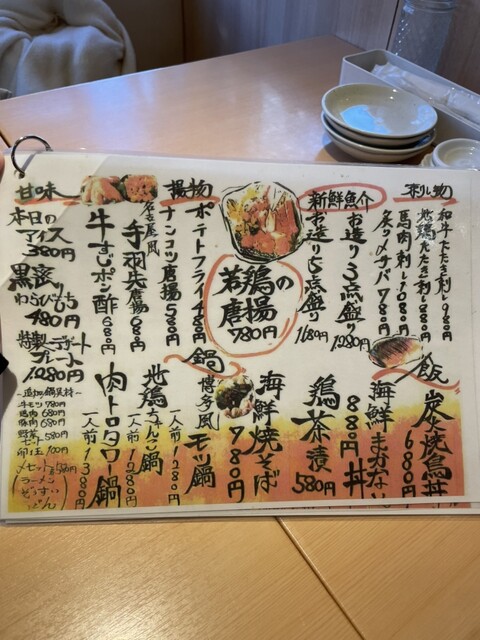 刺し物
和牛たたき刺し980円
地鶏たたき刺し880円
馬肉刺し1080円
炙りメサバ780円
新鮮魚介
お造り3点盛り1280円
お造り5点盛り1680円
若鶏の
唐揚
780円
揚物
ポテトフライ480円
ナンコツ唐揚580円
名古屋風
手羽先唐揚680円
牛すじポン酢680円
甘味
本日の
アイス
380円
黒蜜
わらびもち
480円
特製デザート
プレート
1280円
飯
炭火焼鳥丼
680円
海鮮まかない丼
880円
鶏茶漬
580円
海鮮焼そば
780円
鍋
博多風
モツ鍋
一人前1280円
地鶏ちゃんこ鍋
一人前1280円
肉トロタワー鍋
一人前1380円
～追加鍋具材～
牛モツ780円
鶏肉680円
豚肉680円
野菜セット580円
卵1ヶ100円
〆セット各580円
ラーメン
ぞうすい
うどん